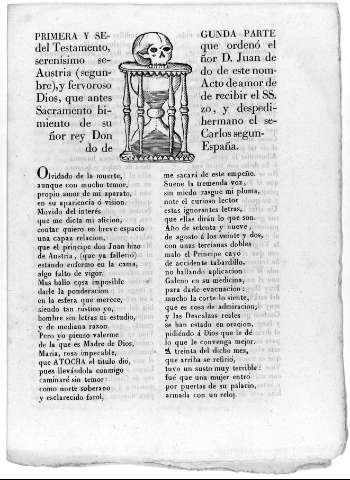 PRIMERA Y SE-GUNDA PARTE
del Testamento, que ordenó el
serenísimo se-ñor D. Juan de
Austria (segun-do de este nom-
bre), y fervoroso Acto de amor de
Dios, que antes de recibir el SS.
Sacramento hi-zo, y despedi-
miento de su hermano el se-
ñor rey Don Carlos segun-
do de España.
Olvidado de la muerte,
aunque con mucho temor,
propio amor de mi aparato,
en su aparicencia ó vision.
Movido del interés
que me dicta mi aficion,
contar quiero en breve espacio
una capaz relacion,
que el príncipe don Juan hizo
de Austria, (que ya falleció)
estando enfermo en la cama,
algo falto de vigor.
Mas hallo cosa imposible
darle la ponderacion
en la esfera que merece,
siendo tan rústico yo,
hombre sin letras ni estudio,
y de mediana razon.
Pero yo pienso valerme
de la que es Madre de Dios,
María, rosa impecable,
que ATOCHA el título dió,
pues llevándola conmigo
caminaré sin temor:
como norte soberano
y esclarecido farol,
me sacará de este empeño.
Suene la tremenda voz,
sin miedo rasgue mi pluma,
note el curioso lector
estas ignorantes letras,
que ellas dirán lo que son.
Año de setenta y nueve,
de agosto á los veinte y dos,
con unas tercianas dobles
malo el Príncipe cayó
de accidente tabardillo,
no hallando aplicacion
Galeno en su medicina,
para darle evacuacion:
mucho la corte lo siente,
que es cosa de admiracion;
y las Descalzas reales
se han estado en oracion,
pidiéndo á Dios que le dé
lo que le convenga mejor.
A treinta del dicho mes,
que arriba se refirió,
tuvo un susto muy terrible:
fué que una muger entró
por puertas de su palacio,
armada con un reloj.